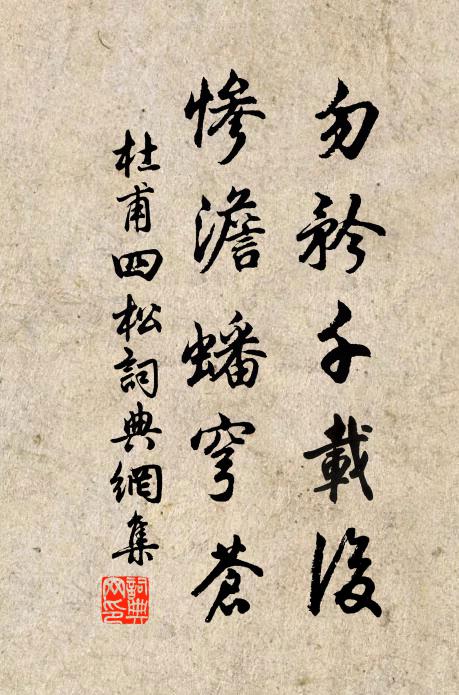 勿矜千載後
慘澹蟠穹蒼
杜甫四松詞典網集
詞典
网印